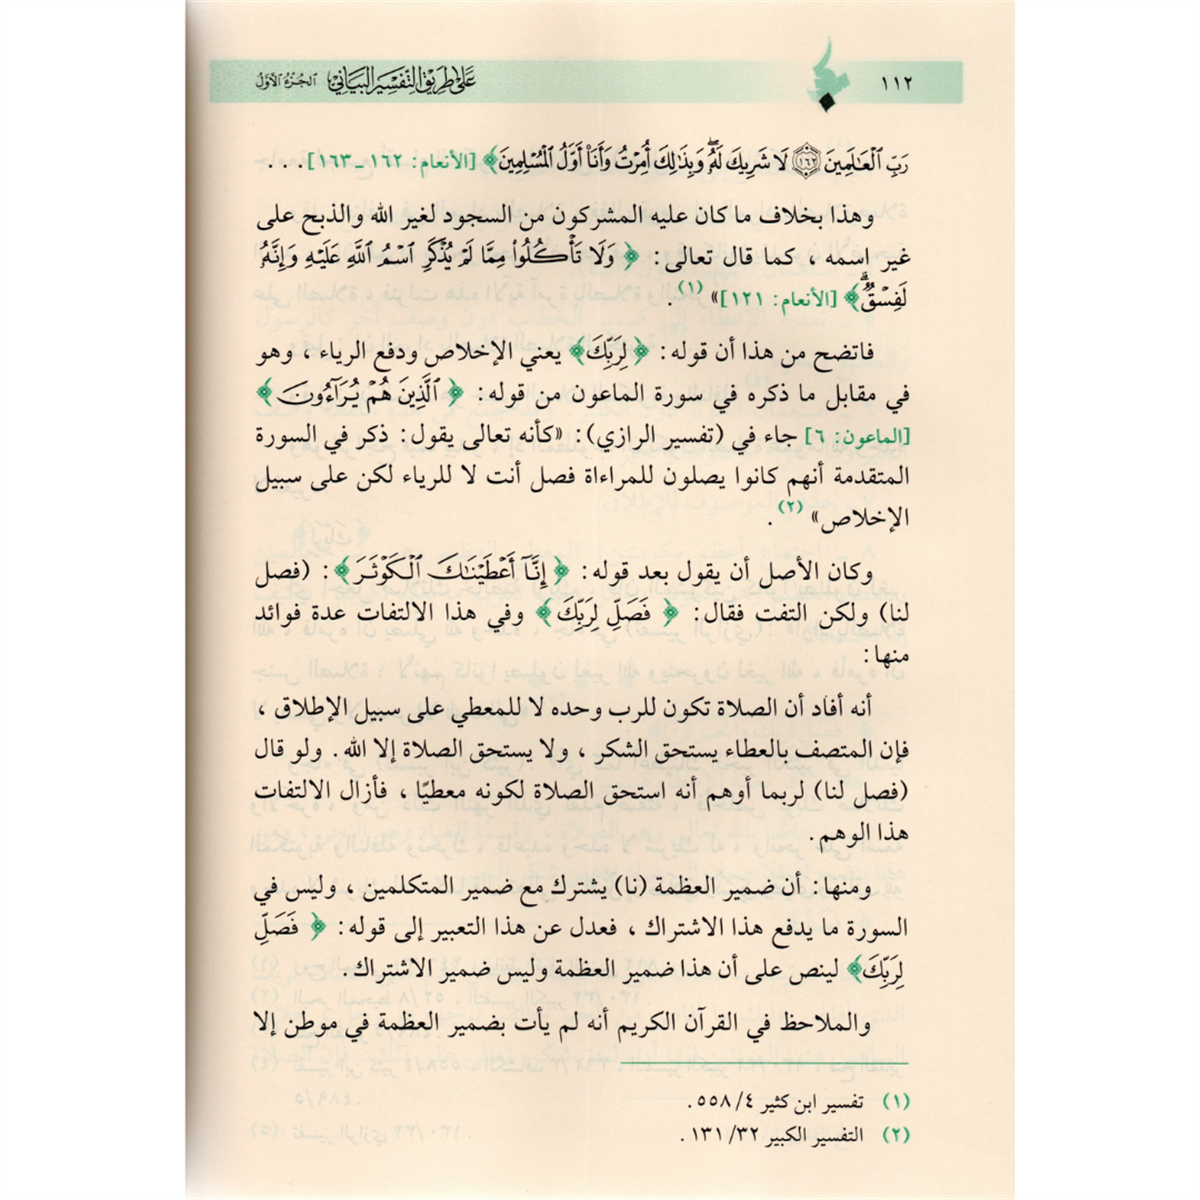 ١١٢ على طريق التفسير البياني الجزء الأول
رَبِّ ٱلْعَٰلَمِينَ ١٦٢ لَا شَرِيكَ لَهُۥ وَبِذَٰلِكَ أُمِرْتُ وَأَنَا۠ أَوَّلُ ٱلْمُسْلِمِينَ﴾ [الأنعام: ١٦٢ - ١٦٣] . . .
وهذا بخلاف ما كان عليه المشركون من السجود لغير الله والذبح على
غير اسمه ، كما قال تعالى: ﴿ وَلَا تَأْكُلُوا۟ مِمَّا لَمْ يُذْكَرِ ٱسْمُ ٱللَّهِ عَلَيْهِ وَإِنَّهُۥ
لَفِسْقٌ﴾ [الأنعام: ١٢١]» (١) .
فاتضح من هذا أن قوله: ﴿ لِرَبِّكَ﴾ يعني الإخلاص ودفع الرياء ، وهو
في مقابل ما ذكره في سورة الماعون من قوله: ﴿ ٱلَّذِينَ هُمْ يُرَآءُونَ ﴾
[الماعون: ٦] جاء في (تفسير الرازي): «كأنه تعالى يقول: ذكر في السورة
المتقدمة أنهم كانوا يصلون للمراءاة فصل أنت لا للرياء لكن على سبيل
الإخلاص» (٢) .
وكان الأصل أن يقول بعد قوله: ﴿ إِنَّآ أَعْطَيْنَٰكَ ٱلْكَوْثَرَ﴾: (فصل
لنا) ولكن التفت فقال: ﴿ فَصَلِّ لِرَبِّكَ﴾ وفي هذا الالتفات عدة فوائد
منها:
أنه أفاد أن الصلاة تكون للرب وحده لا للمعطي على سبيل الإطلاق ،
فإن المتصف بالعطاء يستحق الشكر ، ولا يستحق الصلاة إلا الله. ولو قال
(فصل لنا) لربما أوهم أنه استحق الصلاة لكونه معطيًا ، فأزال الالتفات
هذا الوهم.
ومنها: أن ضمير العظمة (نا) يشترك مع ضمير المتكلمين ، وليس في
السورة ما يدفع هذا الاشتراك ، فعدل عن هذا التعبير إلى قوله: ﴿ فَصَلِّ
لِرَبِّكَ﴾ لينص على أن هذا ضمير العظمة وليس ضمير الاشتراك.
والملاحظ في القرآن الكريم أنه لم يأت بضمير العظمة في موطن إلا
(١) تفسير ابن كثير ٤/ ٥٥٨ .
(٢) التفسير الكبير ٣٢/ ١٣١ .